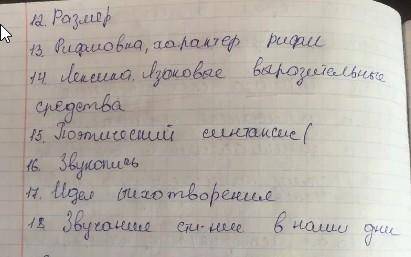 12. Размер
13. Рифмовка, характер рифм
14. Лексика. Языковые выразительные
средства
15. Поэтический синтаксис (
16. Звукопись
17. Идея стихотворения
18. Звучание ст-ния в наши дни